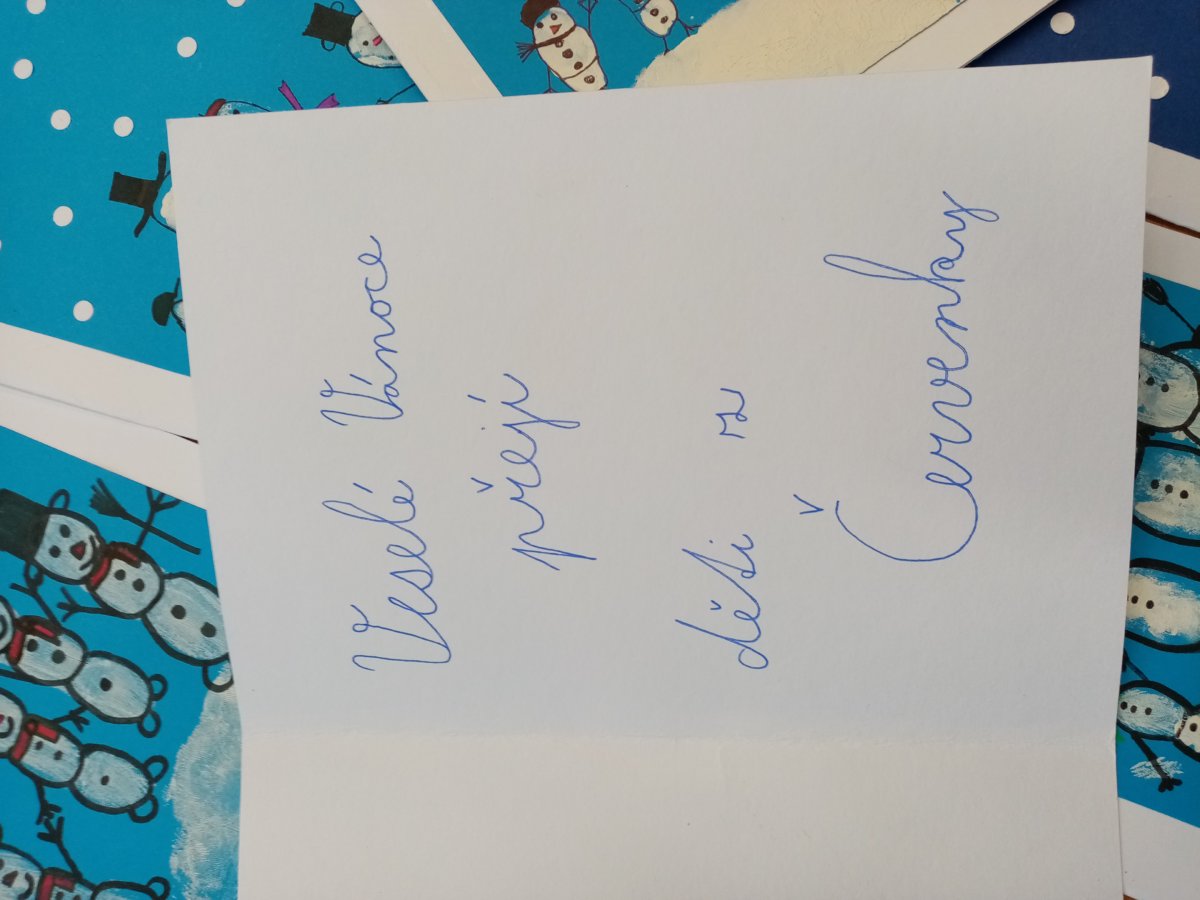 Veselé Vánoce
přejí
děti z
Červenky